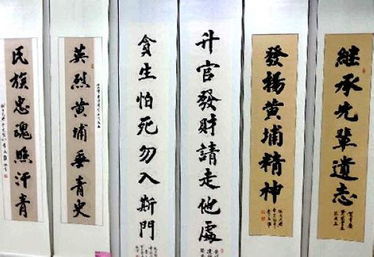 繼承先輩遺志
發揚黃埔精神
升官發財請走他處
貪生怕死勿入斯門
英烈黄埔垂青史
民族忠魂照汗青